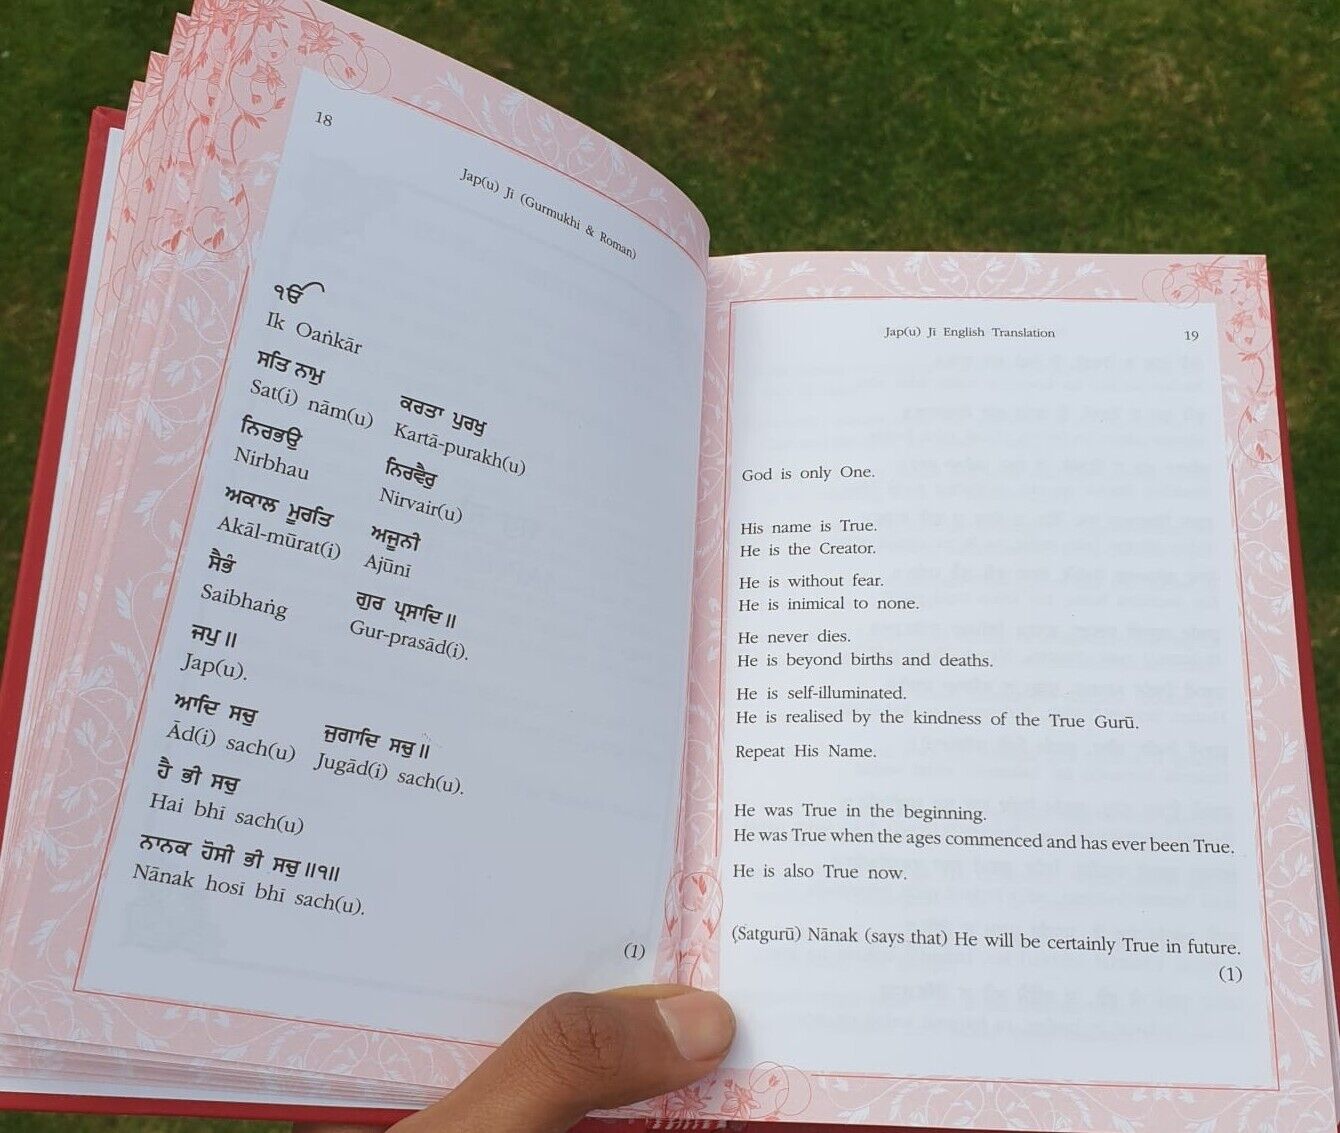 18
Jap(u) Jī (Gurmukhi & Roman)
ੴ
Ik Oaṅkār
ਸਤਿ ਨਾਮੁ ਕਰਤਾ ਪੁਰਖੁ
Sat(i) nām(u) Kartā-purakh(u)
ਨਿਰਭਉ ਨਿਰਵੈਰੁ
Nirbhau Nirvair(u)
ਅਕਾਲ ਮੂਰਤਿ ਅਜੂਨੀ
Akāl-mūrat(i) Ajūnī
ਸੈਭੰ ਗੁਰ ਪ੍ਰਸਾਦਿ॥
Saibhaṅg Gur-prasād(i).
ਜਪੁ॥
Jap(u).
ਆਦਿ ਸਚੁ ਜੁਗਾਦਿ ਸਚੁ॥
Ād(i) sach(u) Jugād(i) sach(u).
ਹੈ ਭੀ ਸਚੁ
Hai bhī sach(u)
ਨਾਨਕ ਹੋਸੀ ਭੀ ਸਚੁ॥੧॥
Nānak hosī bhī sach(u).
(1)
Jap(u) Jī English Translation 19
God is only One.
His name is True.
He is the Creator.
He is without fear.
He is inimical to none.
He never dies.
He is beyond births and deaths.
He is self-illuminated.
He is realised by the kindness of the True Gurū.
Repeat His Name.
He was True in the beginning.
He was True when the ages commenced and has ever been True.
He is also True now.
(Satgurū) Nānak (says that) He will be certainly True in future.
(1)